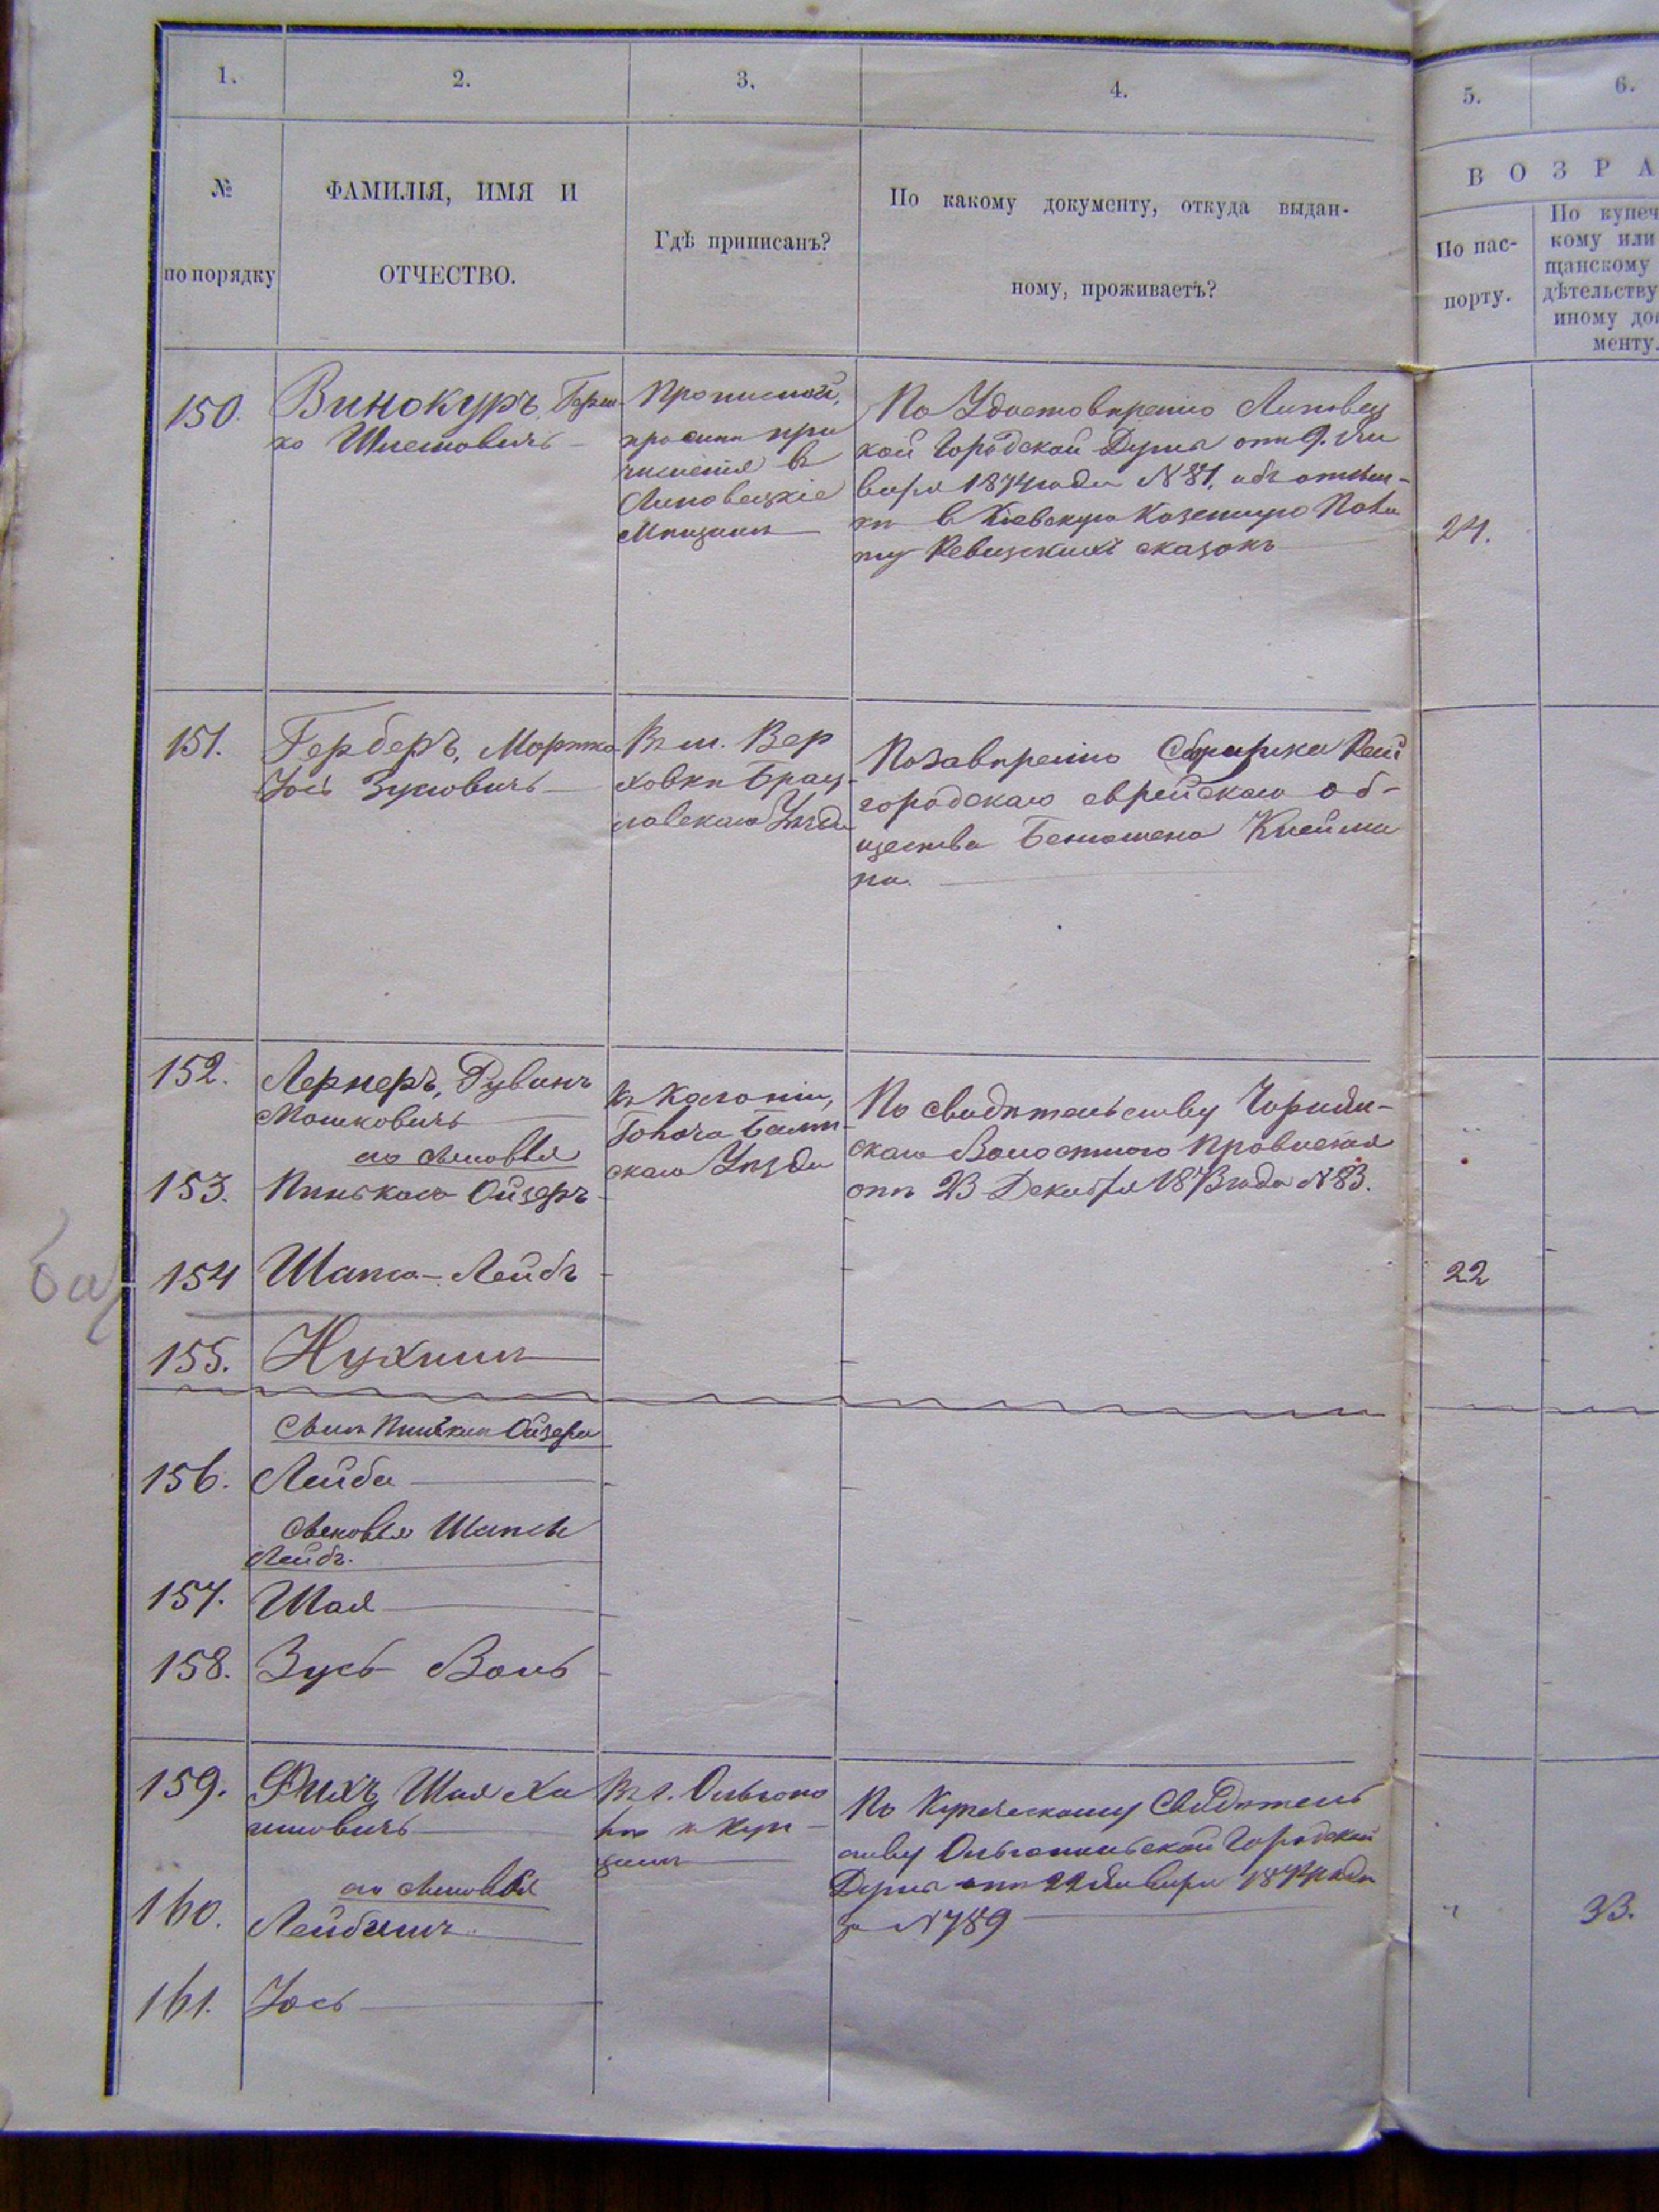 1.
2.
3.
4.
5.
6.
№
по порядку
ФАМИЛІЯ, ИМЯ И
ОТЧЕСТВО.
Гдѣ приписанъ?
По какому документу, откуда выдан-
ному, проживаетъ?
ВОЗРА
По пас-
порту.
По купеч
кому или
щанскому
дѣтельству
иному до
менту.
150.
Винокуръ, Герш-
ко
Прописной,
при
въ
Липовецкіе
Мѣщани
По Удостовѣренію Липовец
кой Городской Думы отъ 9. Ян
варя 1874 года № 81, объ отсыл-
кѣ въ Кіевскую Казенную Пала
ту Ревизскихъ сказокъ
24.
151.
Герберъ, Мортко
Іось Зусьовичъ
Въ м. Вер
ховки Брац-
лавскаго Уѣзда
По завѣренію
городскаго еврейскаго об-
щества
на.
152.
Лернеръ, Рувинъ
Мошковичъ
его сыновья
Въ Колоніи,
скаго Уѣзда
По свидѣтельству
скаго Волостного Правленія
отъ 23 Декабря 1873 года № 83.
153.
Пинькасъ Ойзеръ
154
Шапса-Лейбъ
22
155.
Нухимъ
Сынъ Пинькаса Ойзера
156.
Лейба
Сыновья Шапсы
Лейбъ.
157.
Шая
158.
Зусь Волъ
159.
Фихъ Шая Ха
имовичъ
Въ г. Ольгопо
лѣ въ Куп-
цахъ
По Купеческому Свидѣтель
ству Ольгопольской Городской
Думы отъ 22 Января 1874 года
за № 789
его сыновья
160.
Лейбишъ
33.
161.
Іось